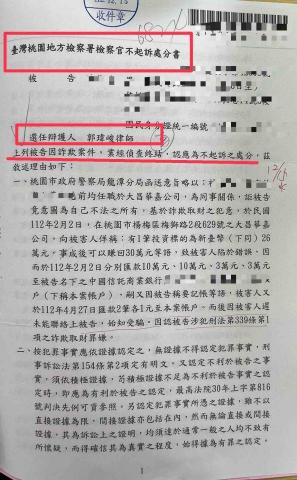 112.12.15
收件章
臺灣桃園地方檢察署檢察官不起訴處分書
被 告
國民身分證統一編號
選任辯護人 郭瑋峻律師
上列被告因詐欺案件，業經偵查終結，認應為不起訴之處分，茲
敘述理由如下：
一、桃園市政府警察局龍潭分局函送意旨略以：
前均任職於大昌華嘉公司，為同事關係，詎被告
竟意圖為自己不法之所有，基於詐欺取財之犯意，於民國
112年2月2日，在桃園市楊梅區梅獅路2段629號之大昌華嘉
公司，向被害人佯稱：有1筆投資標的為新臺幣（下同）26
萬元，事成後可以賺回30萬元等語，致被害人陷於錯誤，因
而於112年2月2日分別匯款10萬元、10萬元、3萬元、3萬元
至被告名下之中國信託商業銀行
戶（下稱本案帳戶），嗣又因被告稱要記帳等語，被害人又
於112年4月27日匯款2筆各1元至本案帳戶。而後因被害人遲
未能聯絡上被告，始知受騙。因認被告涉犯刑法第339條第1
項之詐欺取財罪嫌。
二、按犯罪事實應依證據認定之，無證據不得認定犯罪事實，刑
事訴訟法第154條第2項定有明文。又認定不利於被告之事
實，須依積極證據，苟積極證據不足為不利於被告事實之認
定時，即應為有利於被告之認定，最高法院30年上字第816
號判決先例可資參照。另認定犯罪事實所憑之證據，雖不以
直接證據為限，間接證據亦包括在內，然而無論直接或間接
證據，其為訴訟上之證明，均須達於通常一般之人均不致有
所懷疑，而得確信其為真實之程度，始得據為有罪之認定。
1